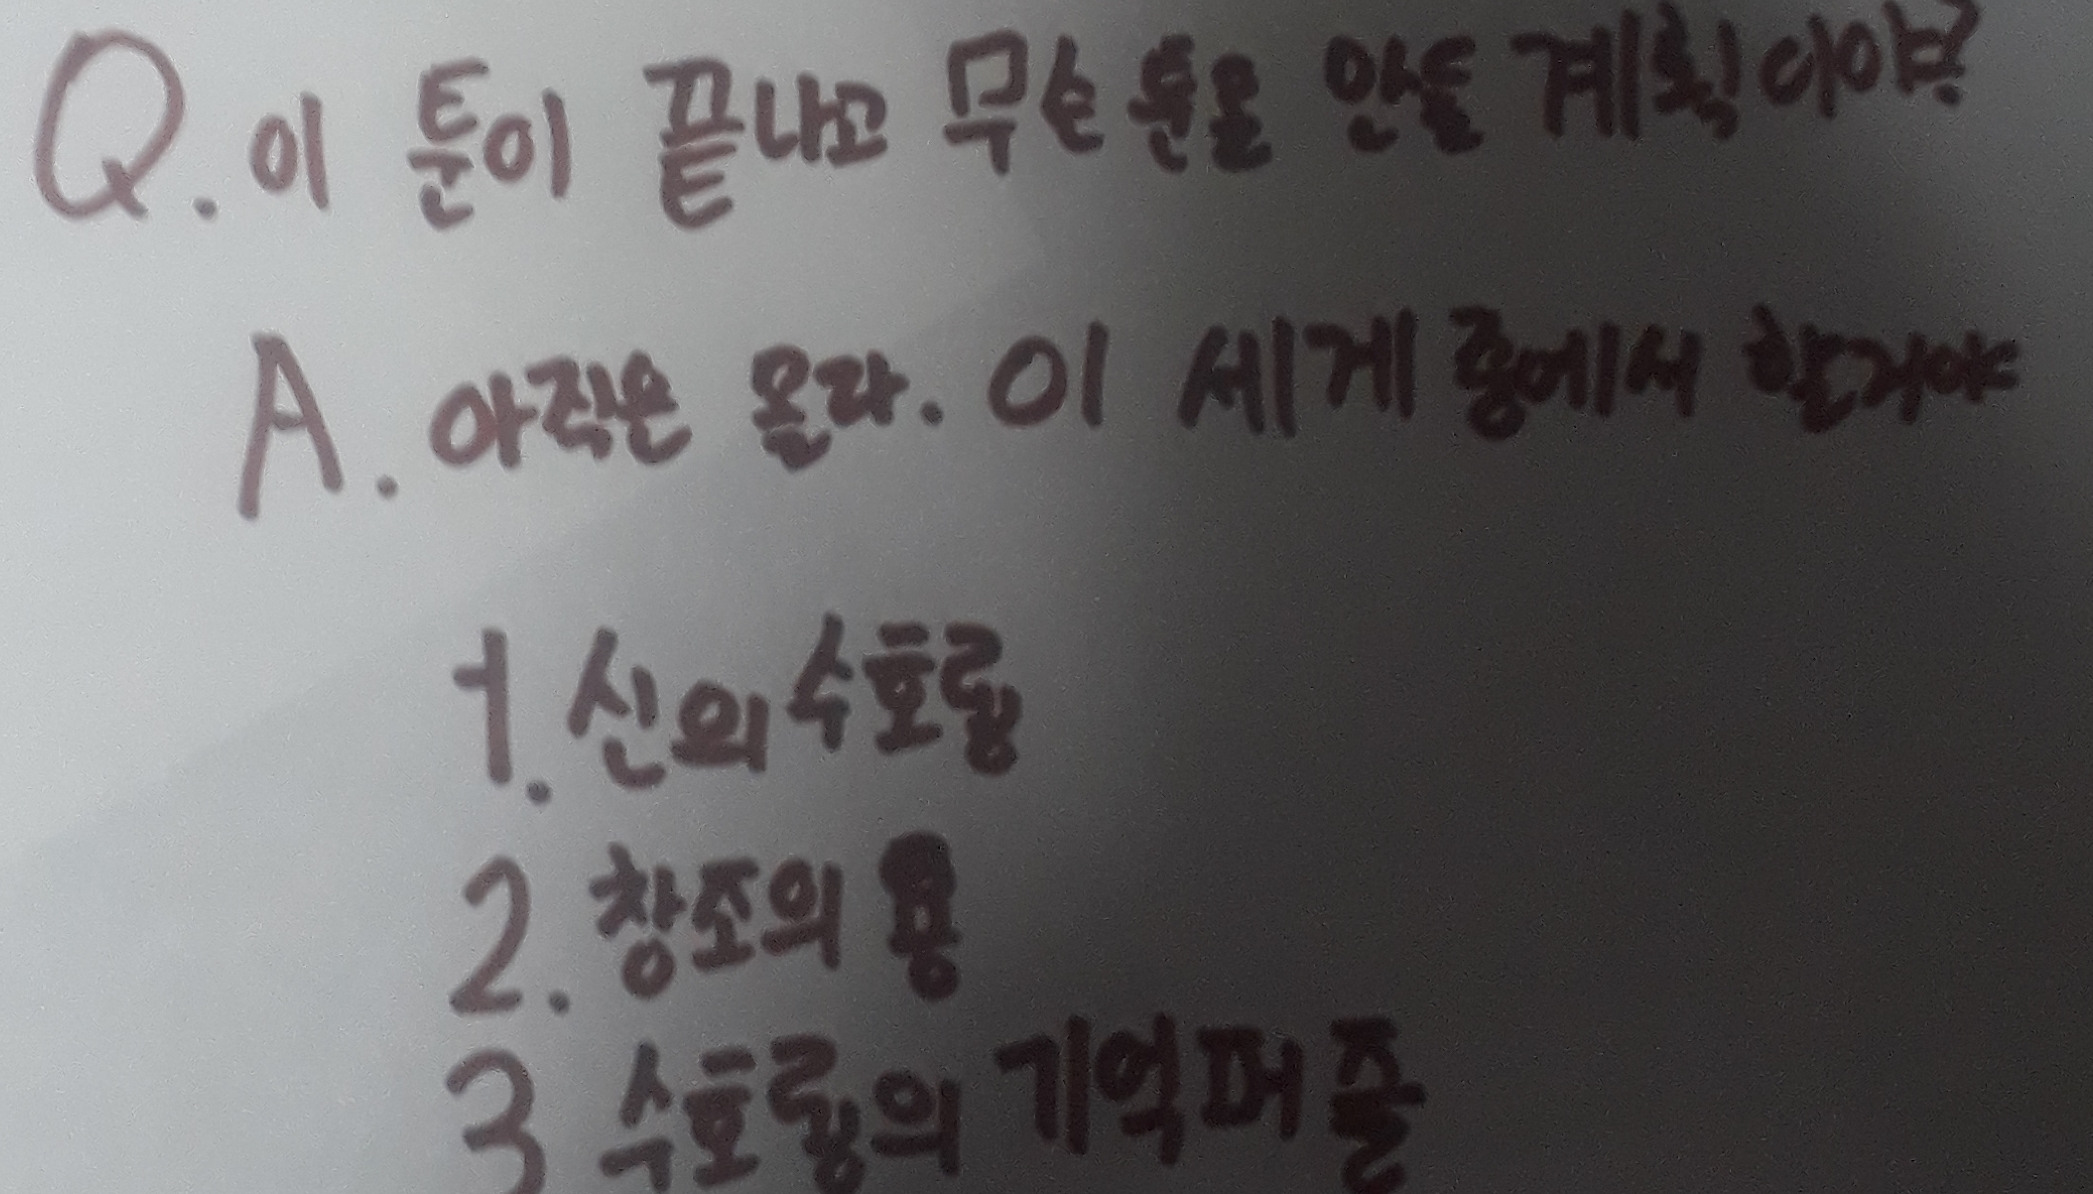 Q. 이 툰이 끝나고 무슨 툰을 만들 계획이야?
A. 아직은 몰라. 이 세게 중에서 할거야
1. 신의 수호령
2. 창조의 용
3 수호령의 기억퍼즐